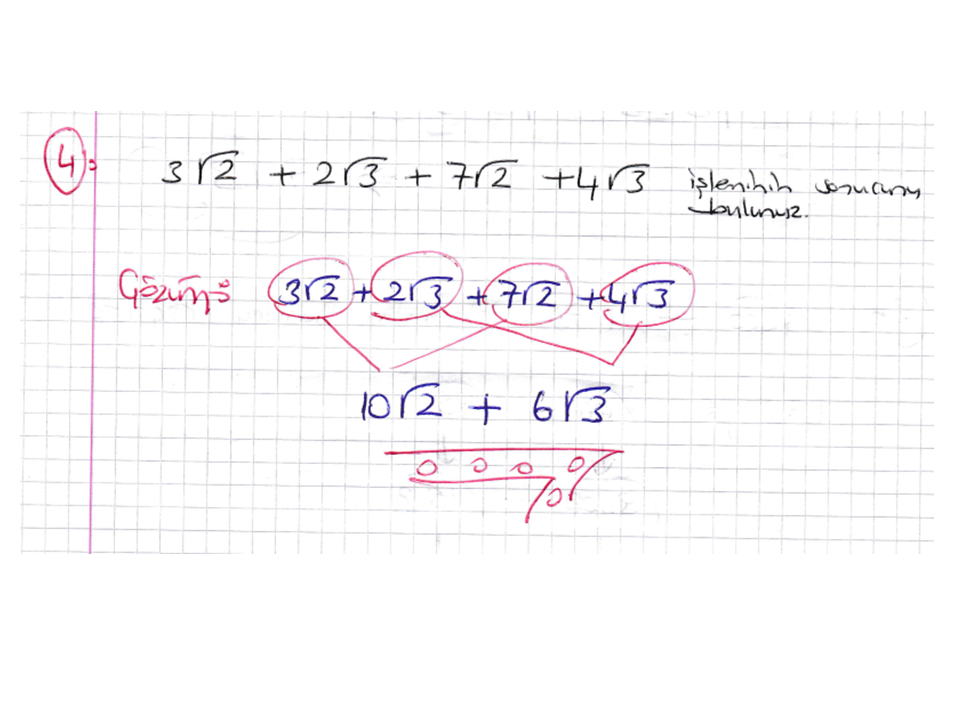 4: 3√2 + 2√3 + 7√2 + 4√3 işleminin sonucunu
bulunuz.
Çözüm: 3√2 + 2√3 + 7√2 + 4√3
10√2 + 6√3